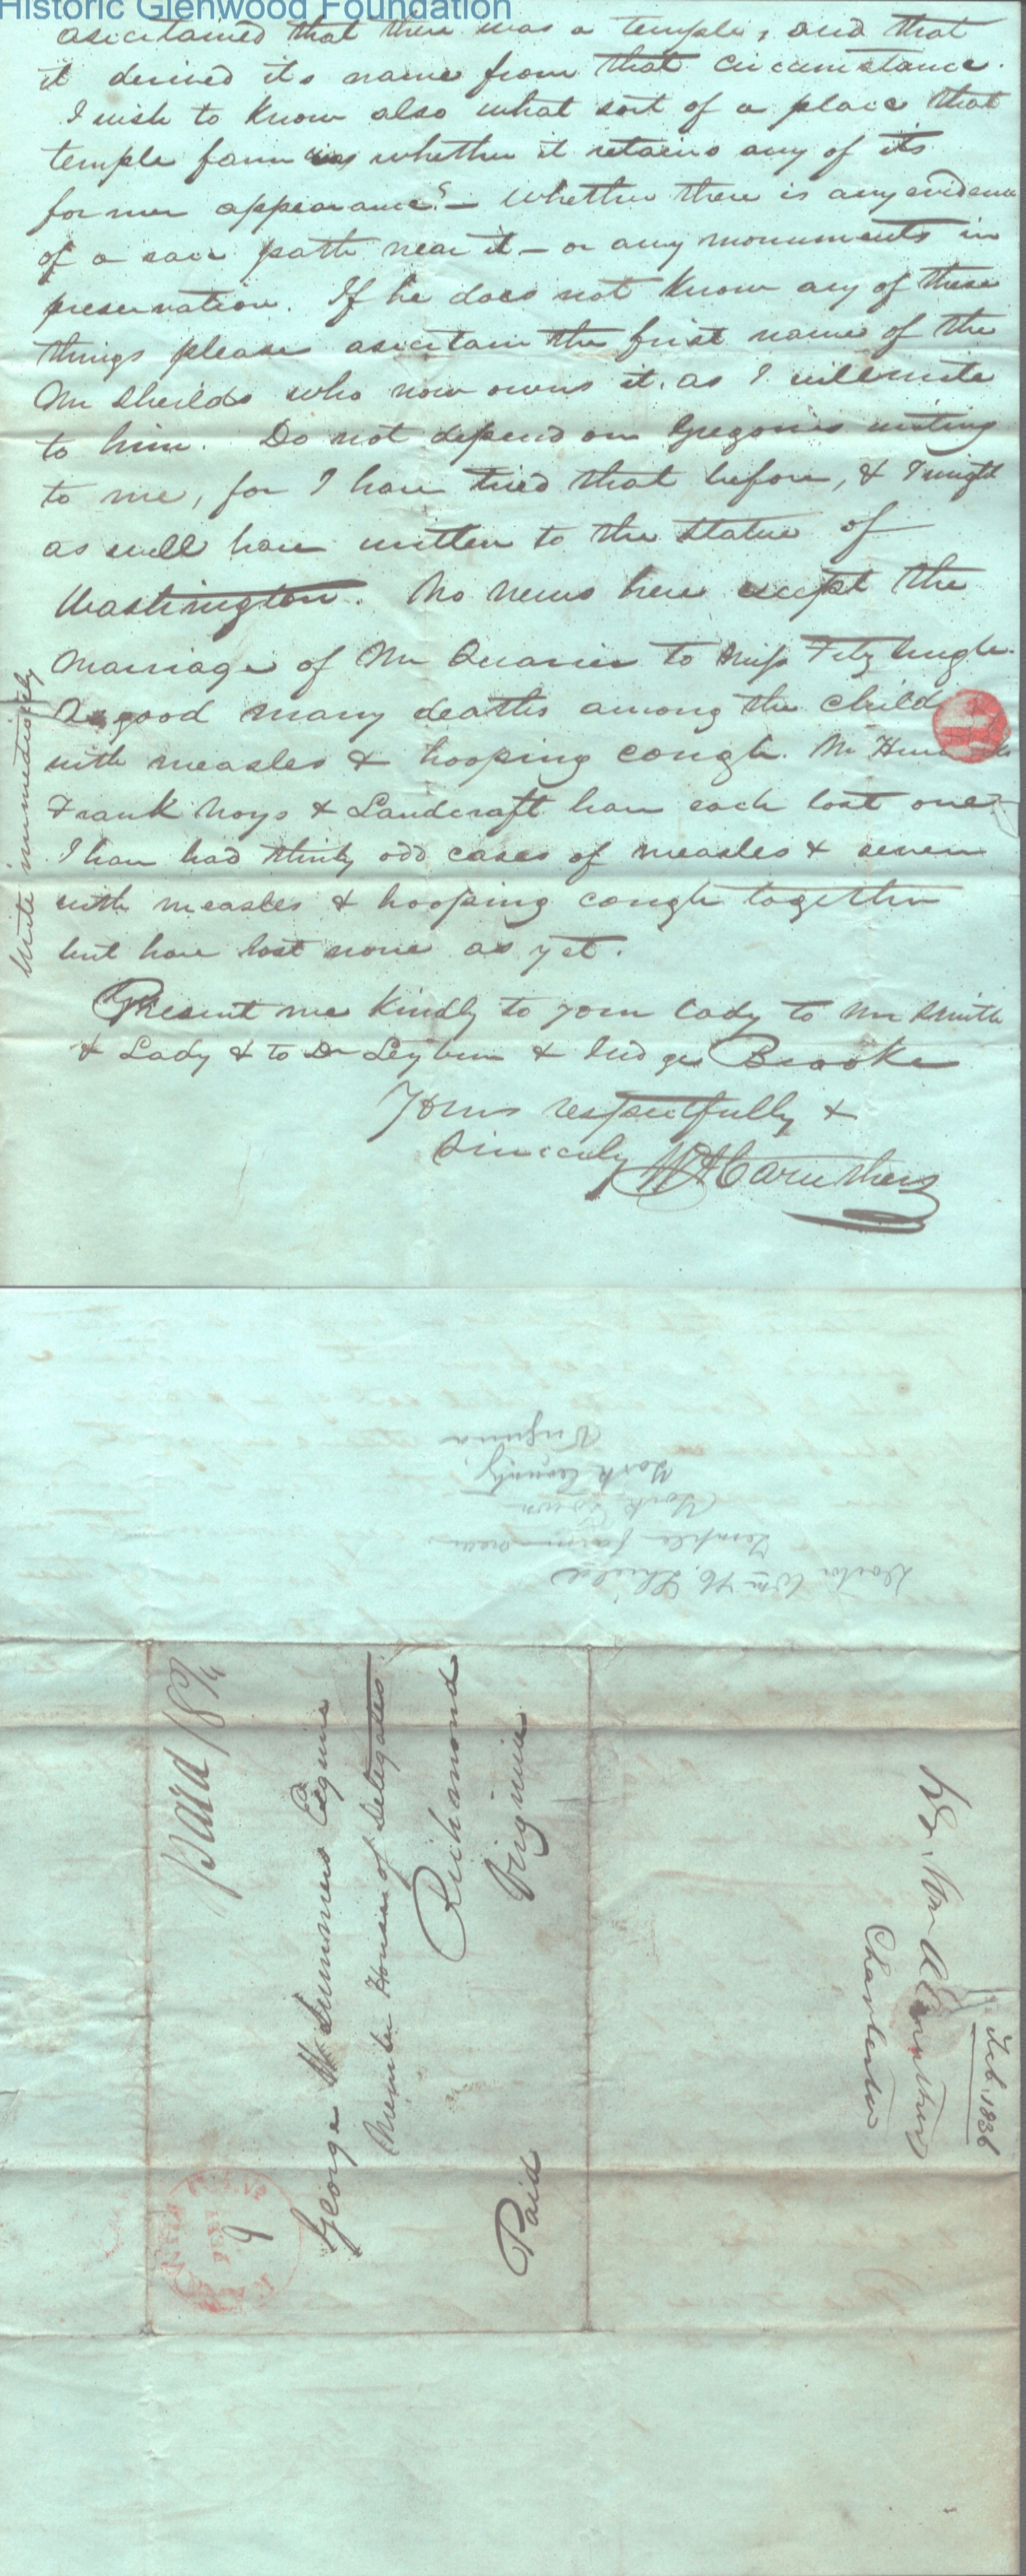 Historic Glenwood Foundation
ascertained that there was a temple, and that
it derived its name from that circumstance.
I wish to know also what sort of a place that
temple farm is, whether it retains any of its
former appearance? – Whether there is any evidence
of a race path near it – or any monuments in
preservation. If he does not know any of these
things please ascertain the first name of the
Mr Sheilds who now owns it, as I will write
to him. Do not depend on Gregories writing
to me, for I have tried that before, & I might
as well have written to the Statue of
Washington. No news here except the
marriage of Mr Quarrier to Miss Fitzhugh.
A good many deaths among the child
with measles & hooping cough. Mr
Frank Noyes & Landcraft have each lost one.
I have had thirty odd cases of measles & seven
with measles & hooping cough together
but have lost none as yet.
Present me kindly to your Lady to Mr Smith
& Lady & to Dr Leyburn & Judge Brooke
Yours respectfully &
Sincerely WACaruthers
Write immediately
Doctor Wm H. Shield
Temple farm near
York Town
York County,
Virginia
paid 18¾
George W Summers Esquire
Member House of Delegates
Richmond
Virginia
Paid
9
Dr. Wm A Caruthers
Charleston
Feb. 1836